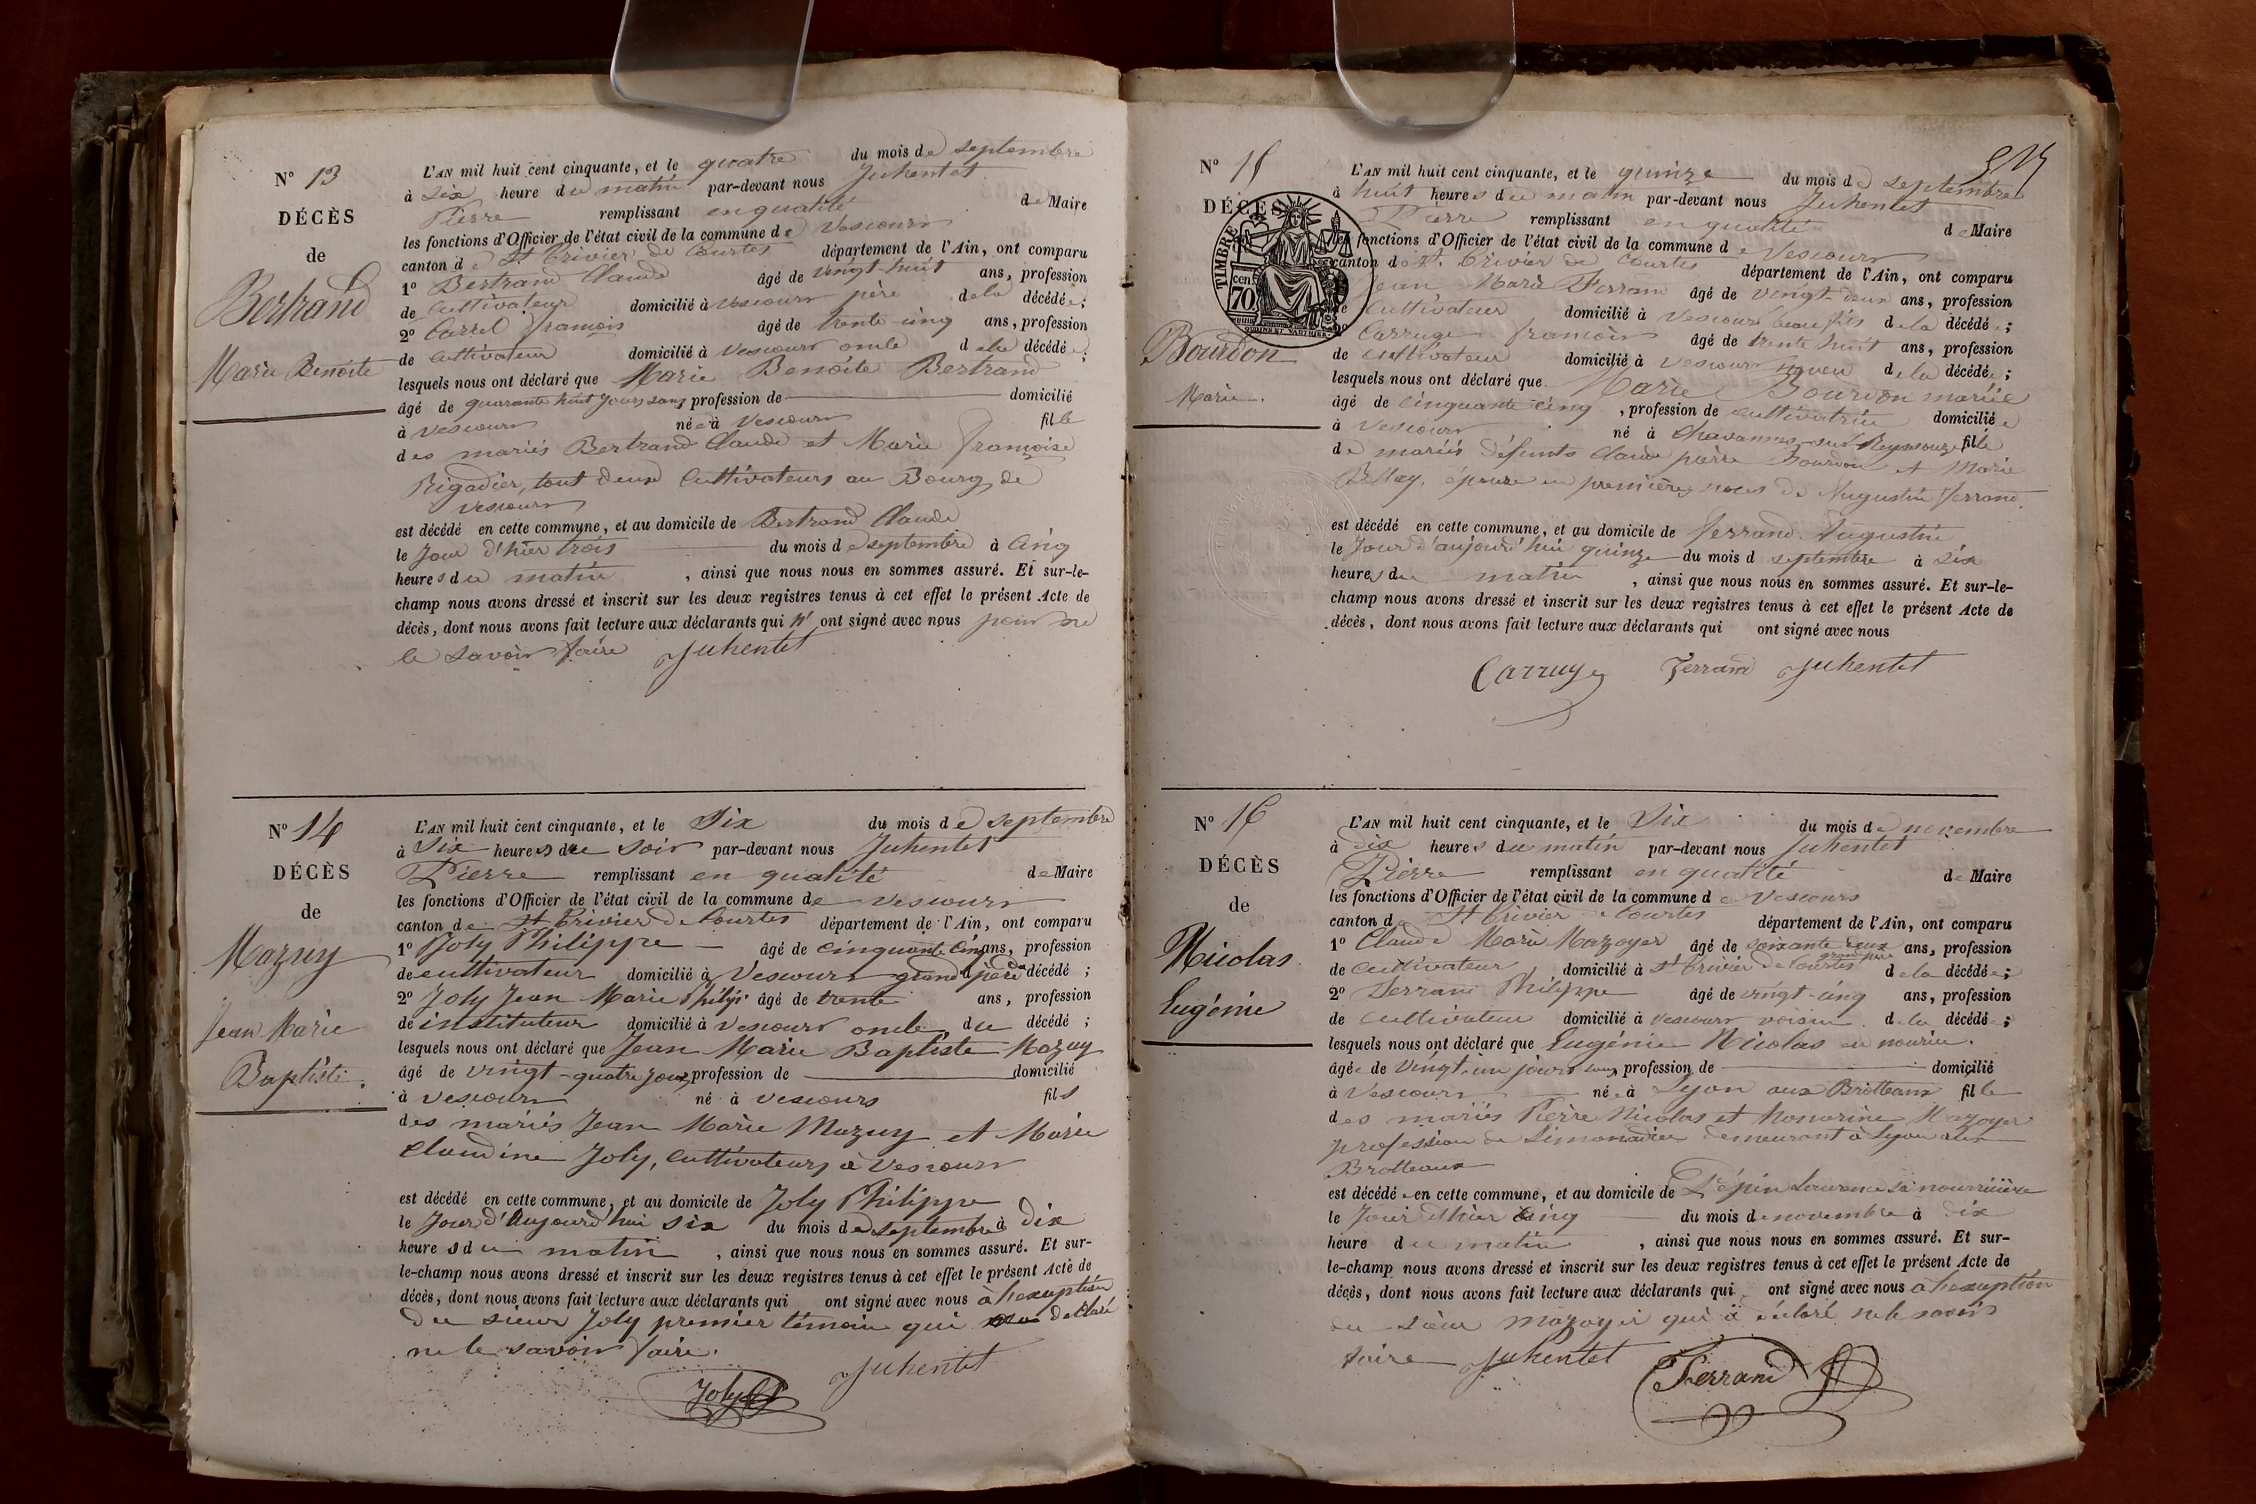 N° 13
DÉCÈS
de
Bertrand
Marie Benoite
L'AN mil huit cent cinquante, et le quatre du mois de septembre
à six heure du matin par-devant nous Juhentet
Pierre remplissant en qualité de Maire
les fonctions d'Officier de l'état civil de la commune de Vescours
canton de St Trivier de Courtes département de l'Ain, ont comparu
1° Bertrand Claude âgé de vingt-huit ans, profession
de Cultivateur domicilié à Vescours père de la décédée;
2° Carrel françois âgé de trente-cinq ans, profession
de Cultivateur domicilié à Vescours oncle de la décédée;
lesquels nous ont déclaré que Marie Benoite Bertrand
âgé de quarante huit jours sans profession de domicilié
à Vescours née à Vescours fille
des mariés Bertrand Claude et Marie françoise
Rigadier, tout deux Cultivateurs au Bourg de
Vescours
est décédé en cette commune, et au domicile de Bertrand Claude
le Jour d'hier trois du mois de septembre à Cinq
heures du matin, ainsi que nous nous en sommes assuré. Et sur-le-
champ nous avons dressé et inscrit sur les deux registres tenus à cet effet le présent Acte de
décès, dont nous avons fait lecture aux déclarants qui n' ont signé avec nous pour ne
le savoir faire Juhentet
N° 14
DÉCÈS
de
Mazuy
Jean Marie
Baptiste.
L'AN mil huit cent cinquante, et le Six du mois de septembre
à Six heures du soir par-devant nous Juhentet
Pierre remplissant en qualité de Maire
les fonctions d'Officier de l'état civil de la commune de Vescours
canton de St Trivier de Courtes département de l'Ain, ont comparu
1° Joly Philippe âgé de cinquante Cinq ans, profession
de cultivateur domicilié à Vescours grand père du décédé;
2° Joly Jean Marie Philip. âgé de trente ans, profession
de instituteur domicilié à Vescours oncle du décédé;
lesquels nous ont déclaré que Jean Marie Baptiste Mazuy
âgé de vingt-quatre jours, profession de domicilié
à Vescours né à Vescours fils
des mariés Jean Marie Mazuy et Marie
Claudine Joly, Cultivateurs à Vescours
est décédé en cette commune, et au domicile de Joly Philippe
le Jour d'aujourd'hui six du mois de septembre à Dix
heures du matin, ainsi que nous nous en sommes assuré. Et sur-
le-champ nous avons dressé et inscrit sur les deux registres tenus à cet effet le présent Acte de
décès, dont nous avons fait lecture aux déclarants qui ont signé avec nous à l'exception
du sieur Joly premier témoin qui a déclaré
ne le savoir faire.
Juhentet
Joly
N° 15
DÉCÈS
TIMBRE
cen. 70
Bourdon
Marie.
L'AN mil huit cent cinquante, et le quinze du mois de septembre
à huit heures du matin par-devant nous Juhentet
Pierre remplissant en qualité de Maire
les fonctions d'Officier de l'état civil de la commune de Vescours
canton de St. Trivier de Courtes département de l'Ain, ont comparu
Jean Marie Ferrand âgé de vingt-deux ans, profession
de Cultivateur domicilié à Vescours beau fils de la décédée;
2° Carruge françois âgé de trente huit ans, profession
de cultivateur domicilié à Vescours neveu de la décédée;
lesquels nous ont déclaré que Marie Bourdon mariée
âgé de cinquante-cinq, profession de cultivatrice domiciliée
à Vescours né à Chavannes sur Reyssouze fille
de mariés défunts Claude pierre Bourdon et Marie
Bellay, épouse en premières noces de Augustin Ferrand.
est décédé en cette commune, et au domicile de ferrand Augustin
le Jour d'aujourd'hui quinze du mois d septembre à Six
heures du matin, ainsi que nous nous en sommes assuré. Et sur-le-
champ nous avons dressé et inscrit sur les deux registres tenus à cet effet le présent Acte de
décès, dont nous avons fait lecture aux déclarants qui ont signé avec nous
Carruge Ferrand Juhentet
N° 16
DÉCÈS
de
Nicolas
Eugénie
L'AN mil huit cent cinquante, et le Six du mois de novembre
à dix heures du matin par-devant nous Juhentet
Pierre remplissant en qualité de Maire
les fonctions d'Officier de l'état civil de la commune de Vescours
canton de St Trivier de Courtes département de l'Ain, ont comparu
1° Claude Marie Mazoyer âgé de soixante deux ans, profession
de Cultivateur, domicilié à St Trivier de Courtes grand père de la décédée;
2° Ferrand Philippe âgé de vingt-cinq ans, profession
de Cultivateur domicilié à Vescours voisin de la décédée;
lesquels nous ont déclaré que Eugénie Nicolas en nourice.
âgée de Vingt-un jours sans profession de domicilié
à Vescours née à Lyon aux Brotteaux fille
des mariés Pierre Nicolas et honorine Mazoyer
profession de Limonadier demeurant à Lyon aux
Brotteaux
est décédée en cette commune, et au domicile de Pépin Laurence sa nourriiière
le Jour d'hier cinq du mois de novembre à dix
heure du matin, ainsi que nous nous en sommes assuré. Et sur-
le-champ nous avons dressé et inscrit sur les deux registres tenus à cet effet le présent Acte de
décès, dont nous avons fait lecture aux déclarants qui ont signé avec nous à l'exception
du sieur Mazoyer qui a déclaré ne le savoir
faire Juhentet Ferrand